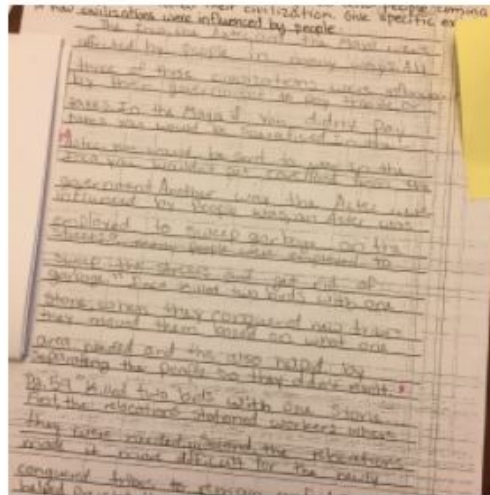 their civilization. Give specific
how civilizations were influenced by people.
The Inca, the Aztec, and the Maya were
affected by people in many ways. All
three of these civilizations were
by their government to pay tribute or
taxes. In the Maya if you didn't pay
taxes you would be sacrificed in the
Aztec, you would be sent to in the
Inca you wouldn't get from the
government. Another way the Aztec were
influenced by people was, an Aztec was
employed to sweep garbage on the
streets. many people were employed to
sweep the streets and get rid of
garbage." Inca killed two birds with one
stone, when they conquered new tribes
they moved them based on what one
area needed and this also helped by
separating the people so they didn't revolt.
Pg. 59 "killed two birds with one stone.
First, the relocations stationed workers where
they were needed. Second, the relocations
made it more difficult for the newly
conquered tribes to